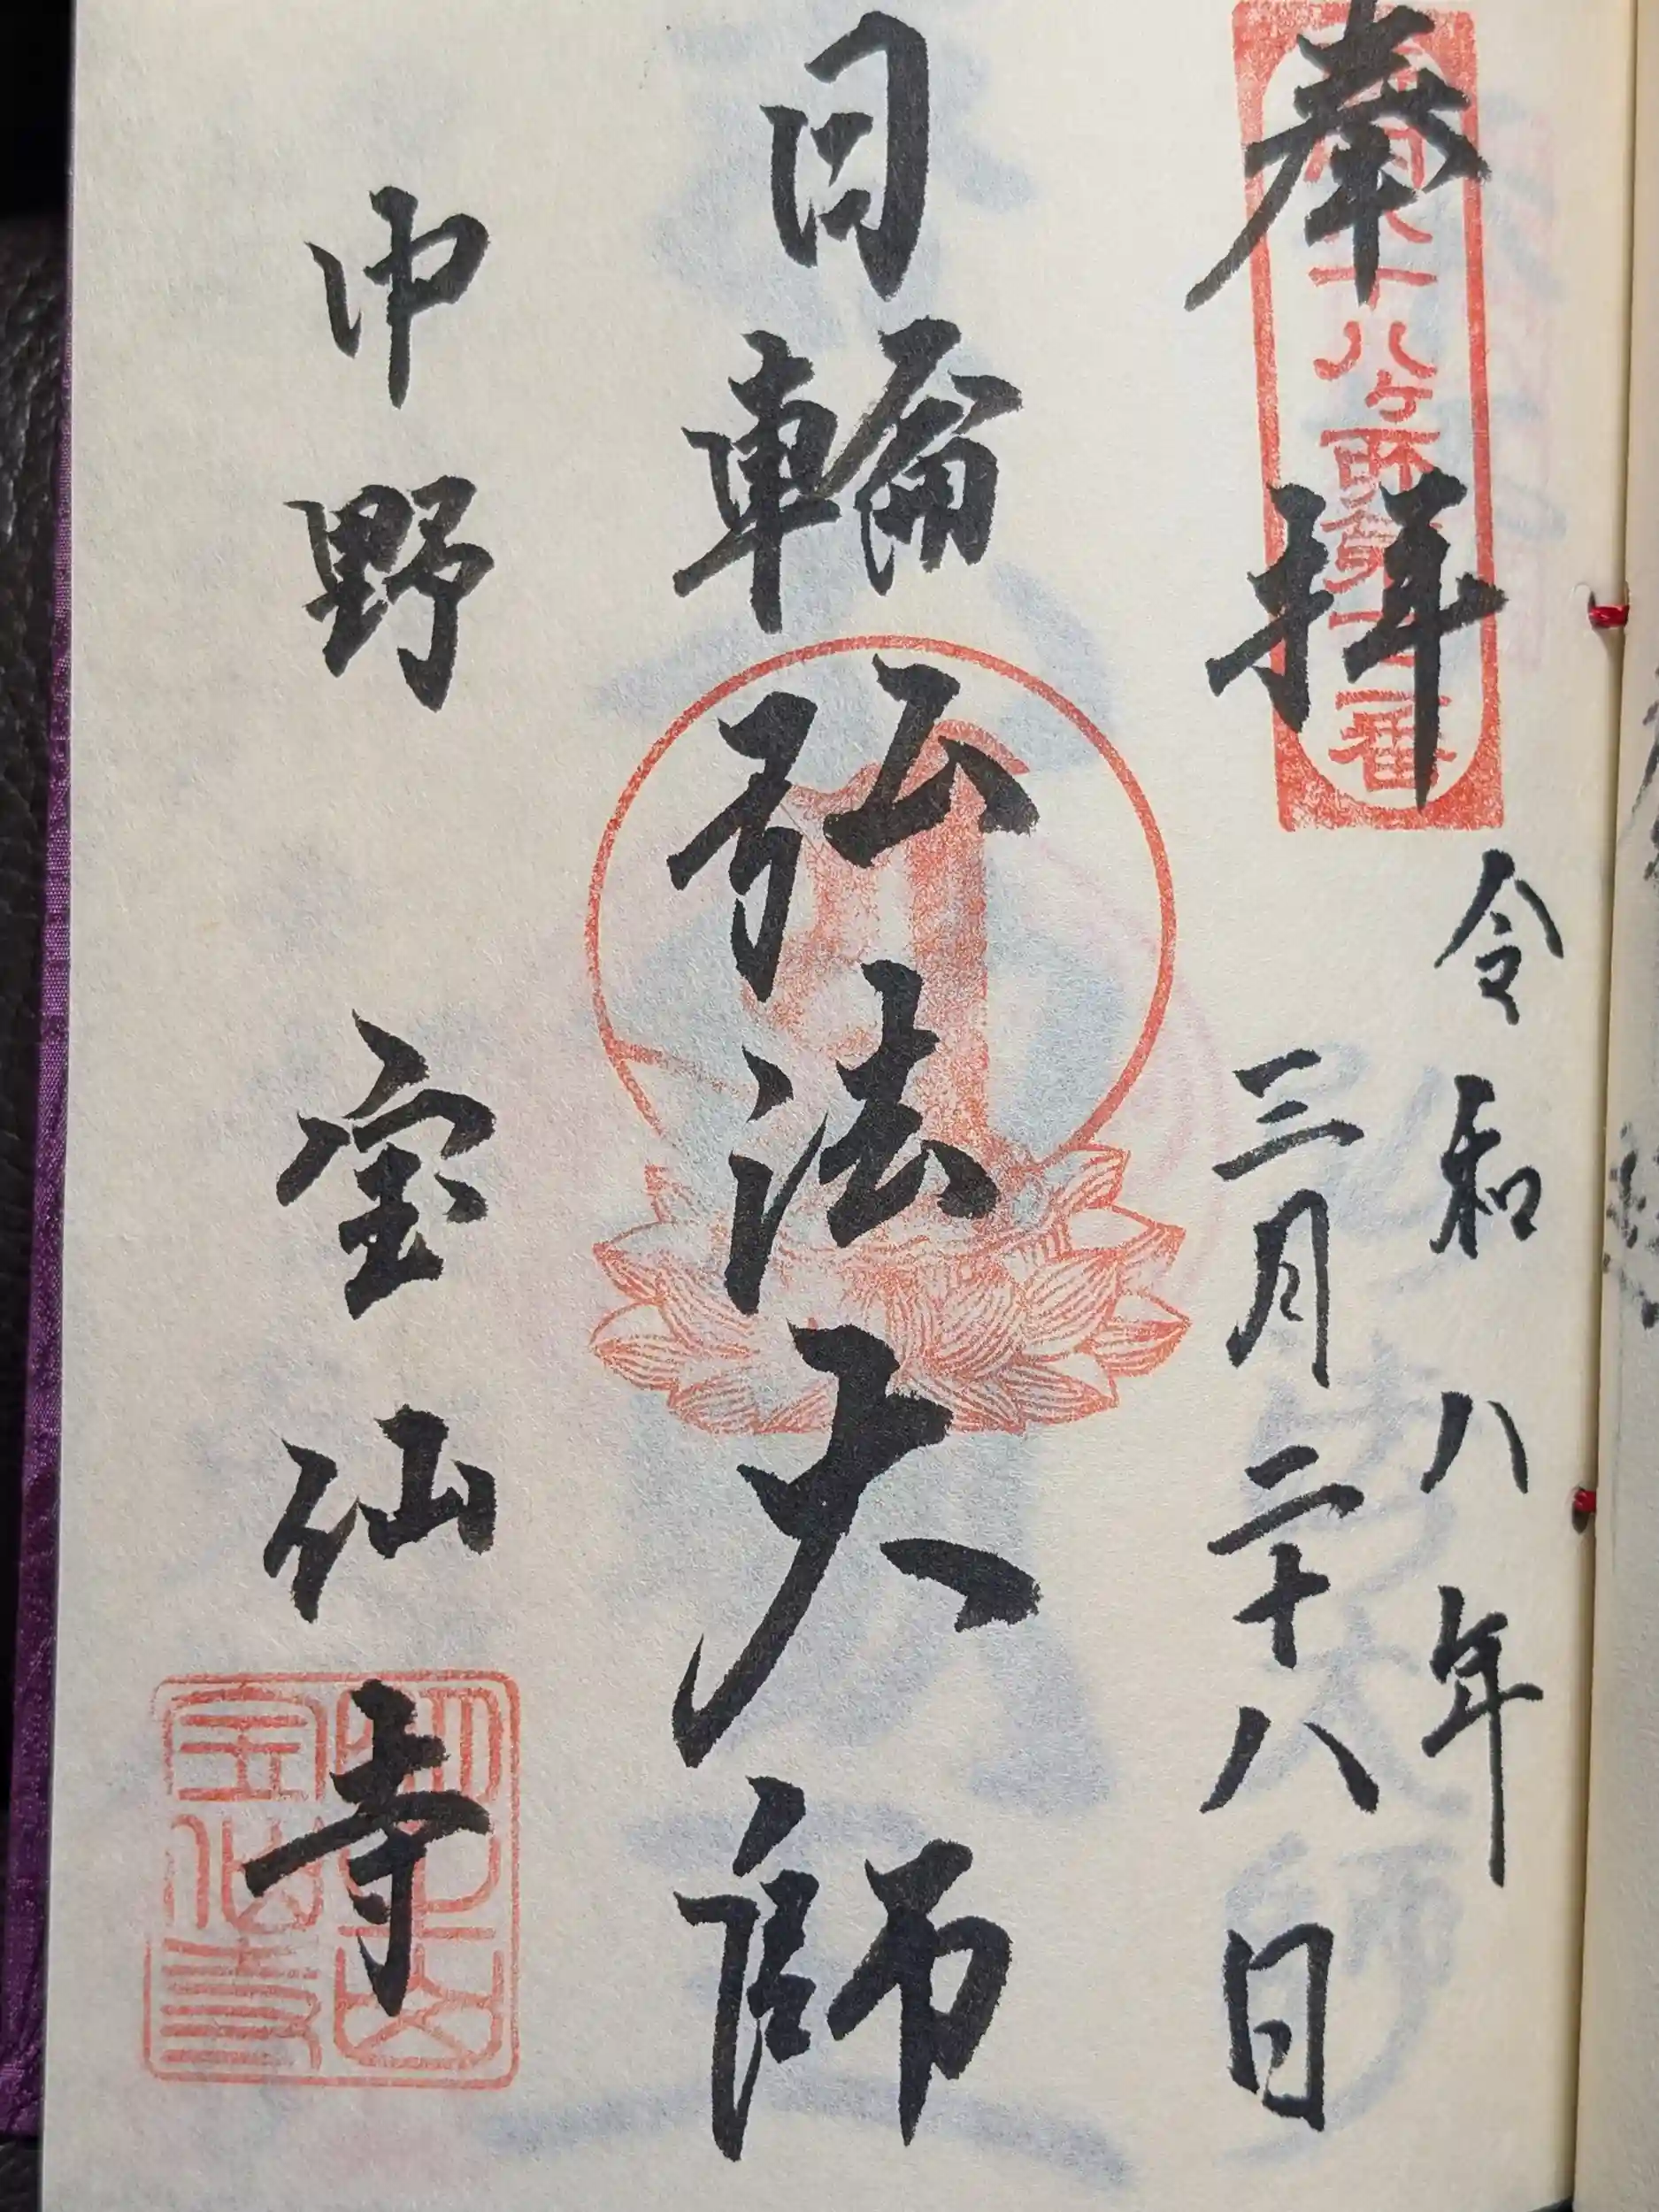 奉拝
八ヶ所第
番
令和八年
三月二十八日
日輪弘法大師
中野
宝仙寺